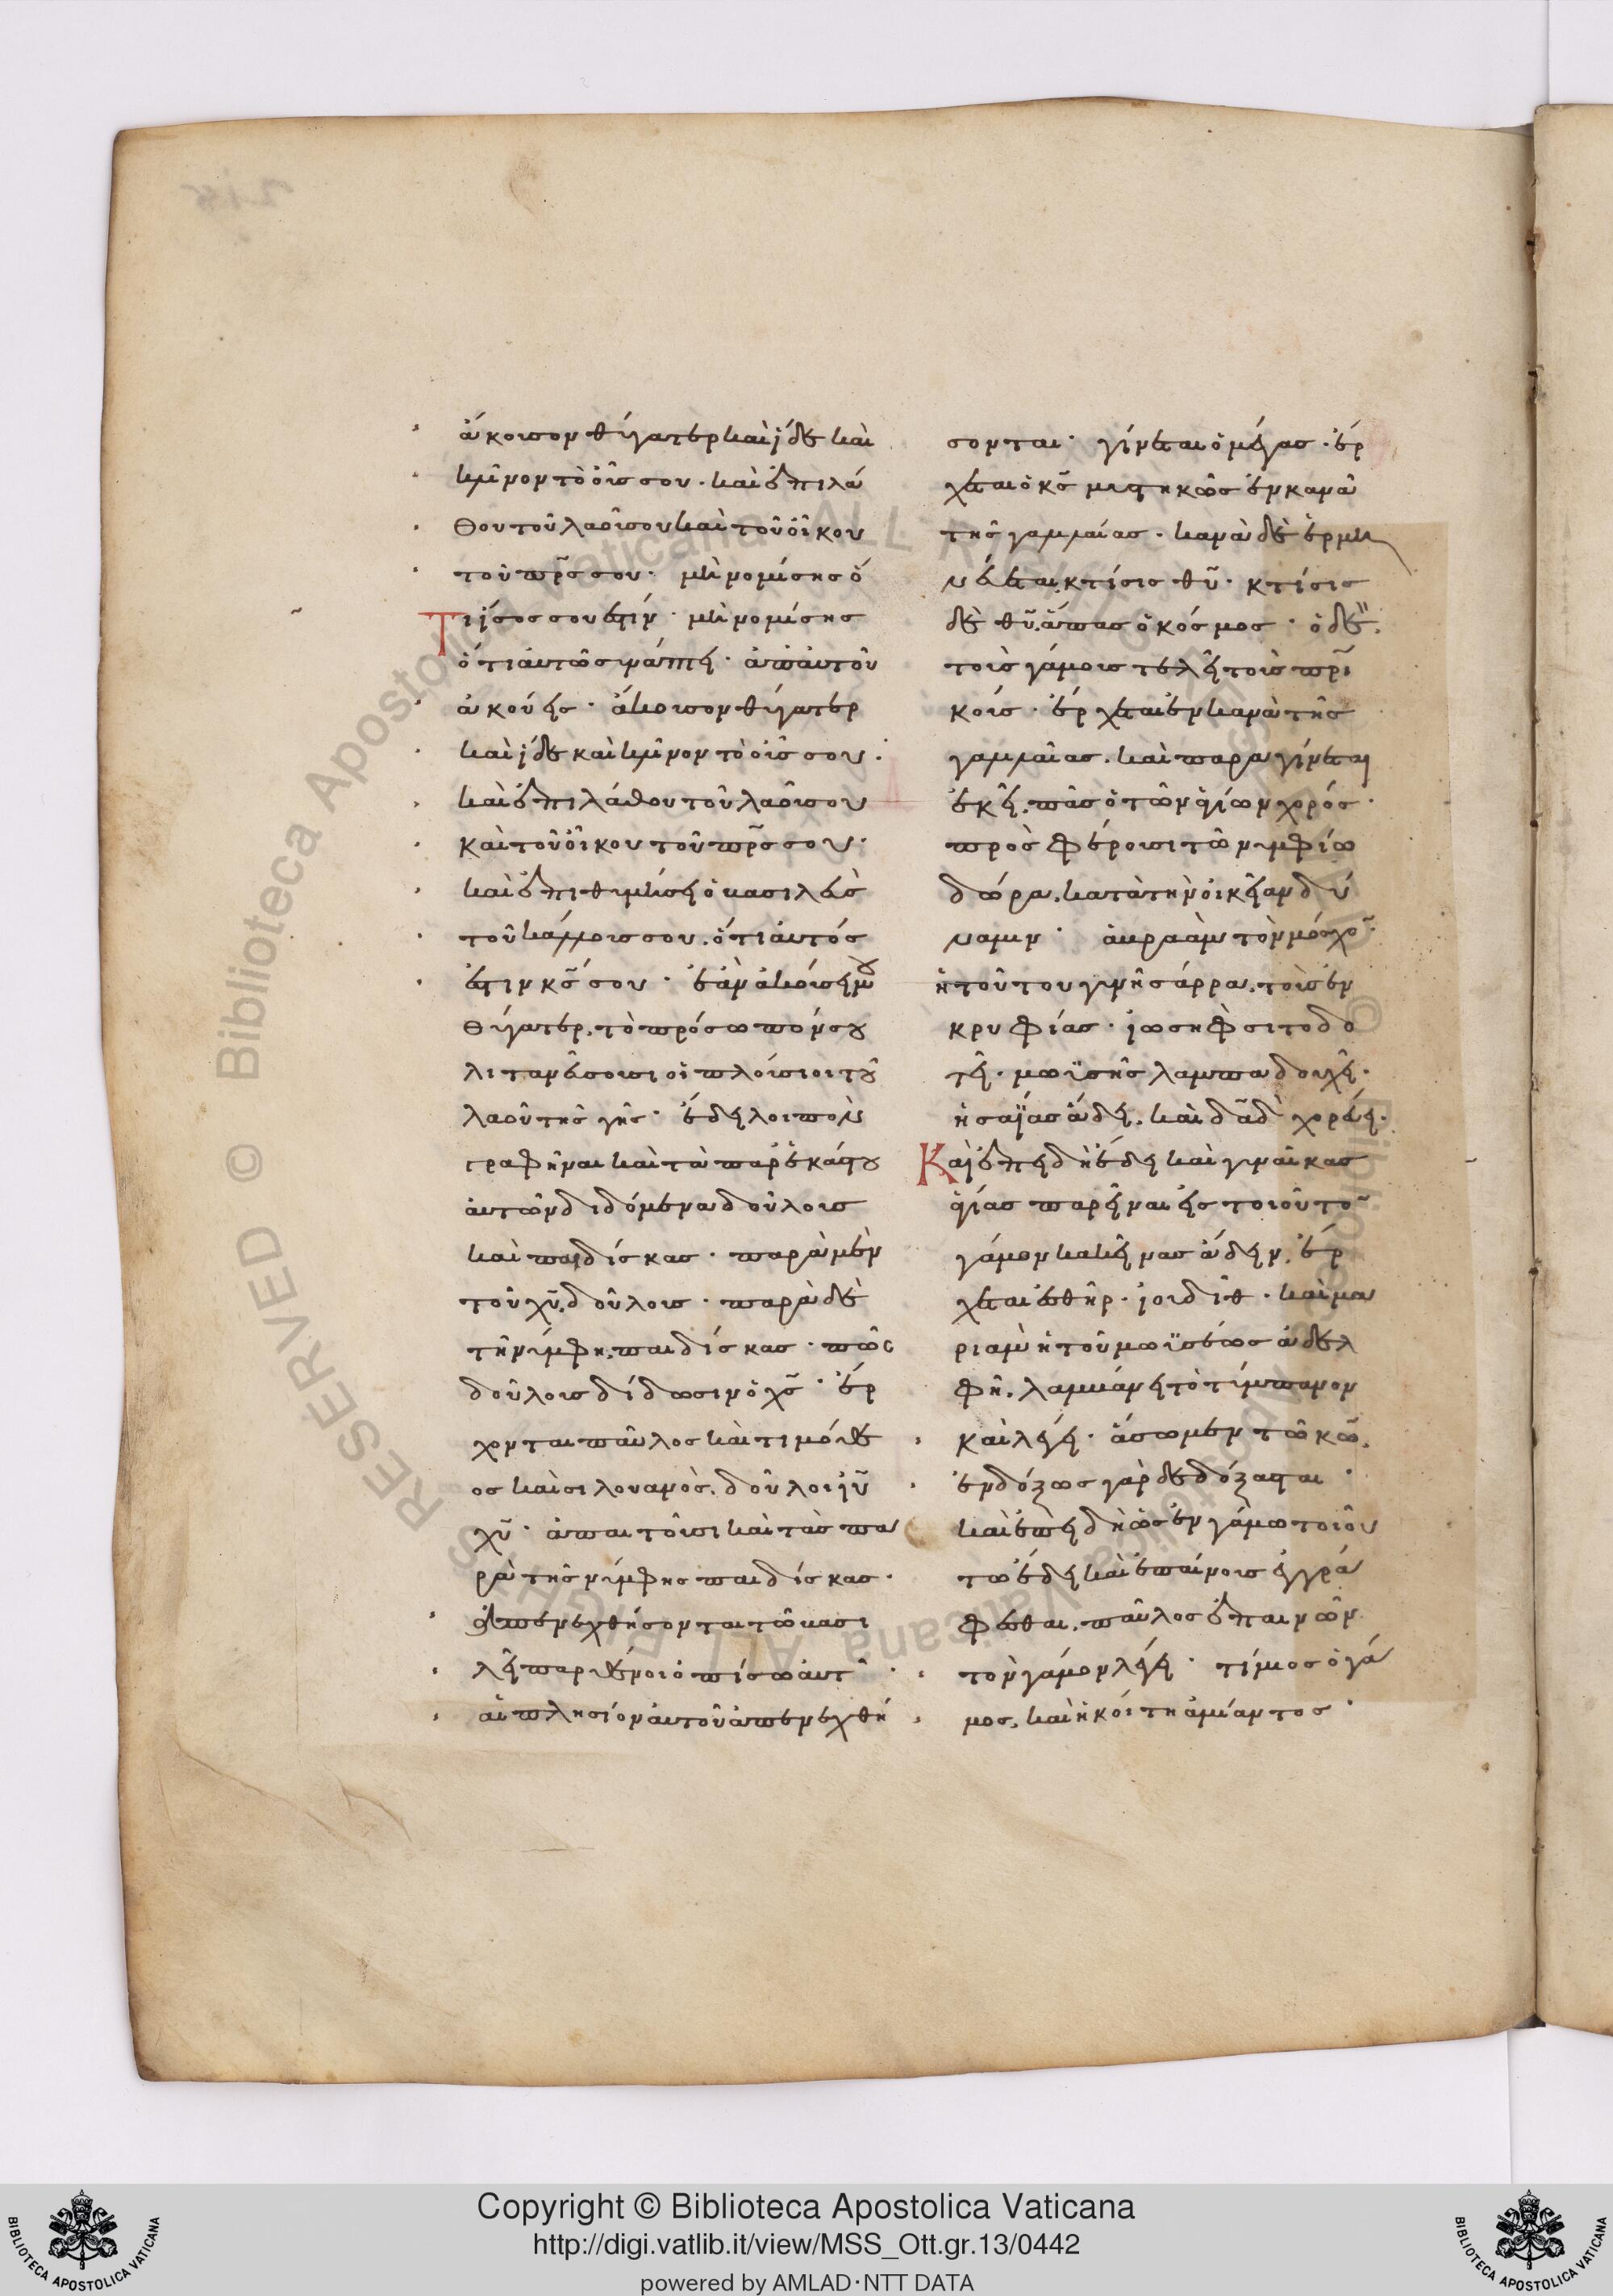 ἄκουσον θύγατερ καὶ ἴδε καὶ
κλῖνον τὸ οὖς σου· καὶ ἐπιλά
θου τοῦ λαοῦ σου καὶ τοῦ οἴκου
τοῦ πρ̅ς σου· μὴ νομίσης ὅ
τι ἴσος σου ἐστίν· μὴ νομίσης
ὅτι αὐτῶ συνάπτει· ἀπ' αὐτοῦ
ἀκούεις· ἄκουσον θύγατερ
καὶ ἴδε καὶ κλῖνον τὸ οὖς σου·
καὶ ἐπιλάθου τοῦ λαοῦ σου
καὶ τοῦ οἴκου τοῦ πρ̅ς σου·
καὶ ἐπιθυμήσει ὁ βασιλεὺς
τοῦ κάλλους σου· ὅτι αὐτός
ἐστιν κ̅ς σου· ἐὰν ἀκούσει μου
θύγατερ, τὸ πρόσωπόν σου
λιτανεύσουσι οἱ πλούσιοι τοῦ
λαοῦ τῆς γῆς· ἔδει λοιπὸν
γραφῆναι καὶ τὰ παρ' ἑκάστου
αὐτῶν διδόμενα δούλους
καὶ παιδίσκας· παρὰ μὲν
τοῦ χ̅υ, δούλους· παρὰ δὲ
τῆ νύμφη, παιδίσκας· πῶς
δούλους δίδωσιν ὁ χ̅ς· ἔρ
χονται παῦλος καὶ τιμόθε
ος καὶ σιλουανὸς, δοῦλοι ι̅υ
χ̅υ· ἀπαιτοῦσι καὶ τὰς πα
ρὰ τῆς νύμφης παιδίσκας·
ἀπενεχθήσονται τῶ βασι
λεῖ παρθένοι ὀπίσω αὐτῆς·
αἱ πλησίον αὐτοῦ ἀπενεχθή
σονται· γίνεται ὁ μέγας· ἔρ
χεται ὁ κ̅ς μυστικῶς ἐν κανᾶ
τῆς γαλιλαίας· κανὰ δὲ ἑρμη
νεύεται, κτίσις θ̅υ· κτίσις
δὲ θ̅υ, ἅπας ὁ κόσμος· ὁ δὲ
τοῖς γάμοις τελεῖ τοῖς πρ̅ι
κοῖς· ἔρχεται ἐν κανὰ τῆς
γαλιλαίας· καὶ παραγίνεται
ἐκεῖ, πᾶς ὁ τῶν ἁγίων χορός·
προσφέρουσι τῶ νυμφίω
δῶρα, κατὰ τὴν οἰκείαν δύ
ναμιν· ἀβραὰμ τὸν μόσχον·
ἡ τούτου γυνὴ σάρρα, τοὺς ἐν
κρυφίας· ἰωσὴφ σιτοδο
τεῖ· μωϋσῆς λαμπαδουχεῖ·
ἡσαΐας ἄδει· καὶ δα̅δ χορεύει·
Καὶ ἐπειδὴ ἔδει καὶ γυναῖκας
ἁγίας παρεῖναι εἰς τοιοῦτον
γάμον κακείνας ἄδειν, ἔρ
χεται ἐσθὴρ· ἰουδὶθ· καὶ μα
ριὰμ ἡ τοῦ μωϋσέως ἀδελ
φὴ, λαμβάνει τὸ τύμπανον
καὶ λέγει· ἄσωμεν τῶ κ̅ω,
ἐνδόξως γὰρ δεδόξασται·
καὶ ἐπειδὴ ὡς ἐν γάμω τοιού
τω ἔδει καὶ ἐπαίνους ἐγγρά
φεσθαι, παῦλος ἐπαινῶν
τὸν γάμον λέγει· τίμιος ὁ γά
μος, καὶ ἡ κοίτη ἀμίαντος·
Copyright © Biblioteca Apostolica Vaticana
http://digi.vatlib.it/view/MSS_Ott.gr.13/0442
powered by AMLAD·NTT DATA